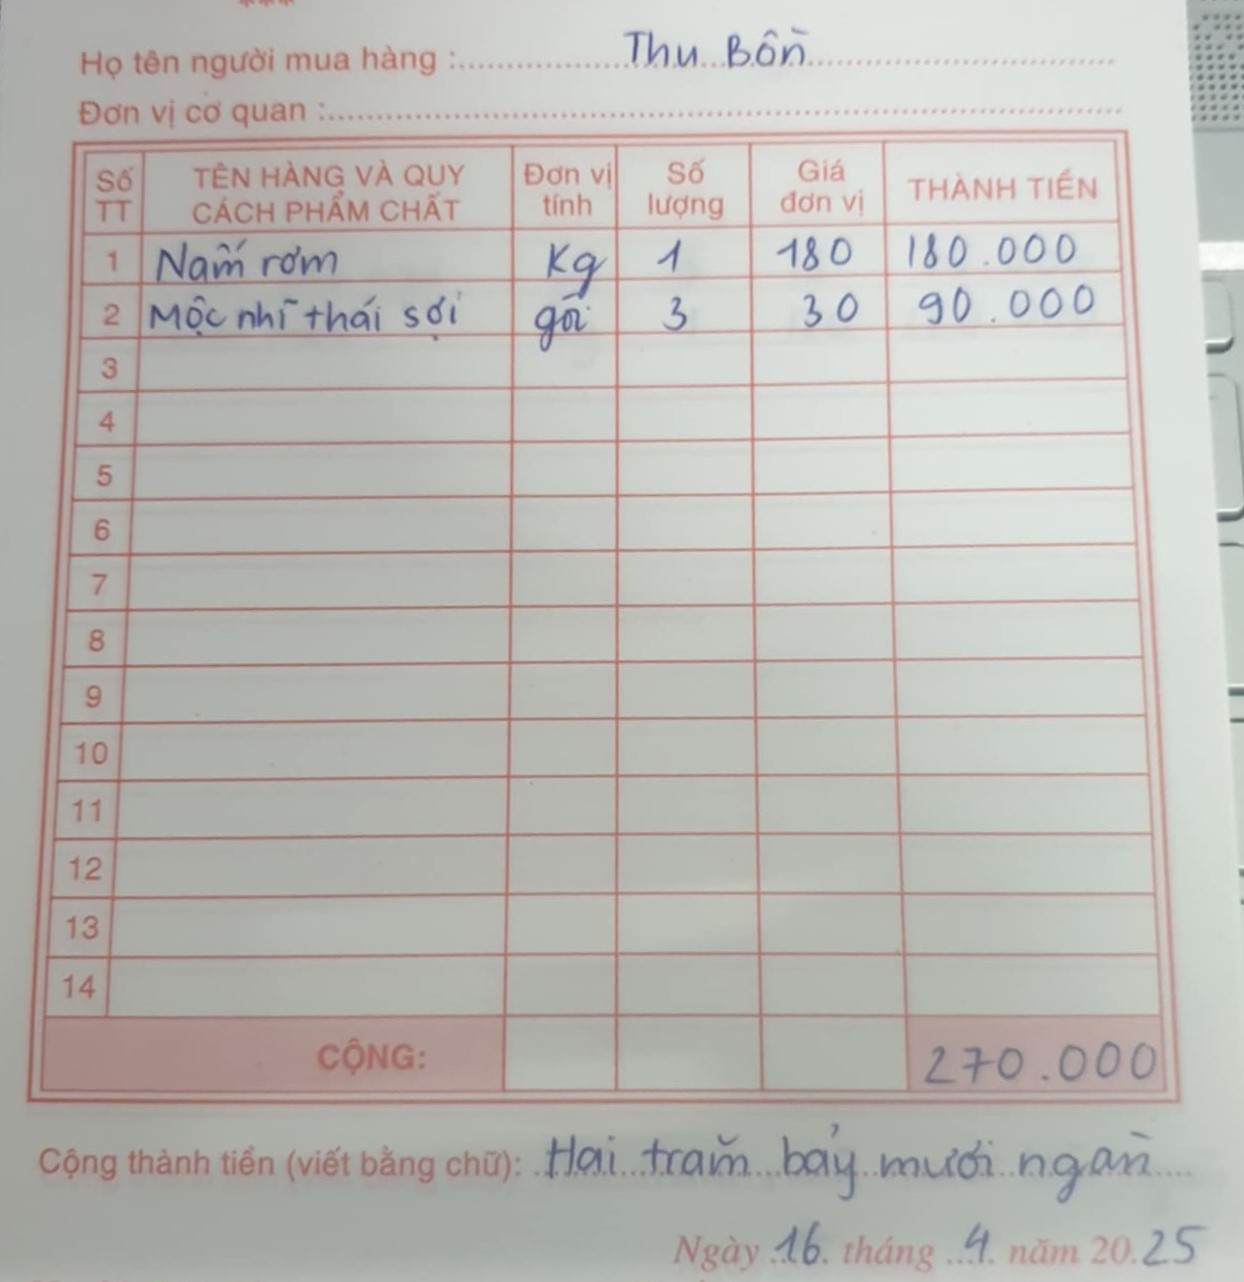 ***
Họ tên người mua hàng : Thu Bồn
Đơn vị cơ quan :
Số TT TÊN HÀNG VÀ QUY CÁCH PHẨM CHẤT Đơn vị tính Số lượng Giá đơn vị THÀNH TIỀN
1 Nấm rơm Kg 1 180 180.000
2 Mộc nhĩ thái sợi gói 3 30 90.000
3
4
5
6
7
8
9
10
11
12
13
14
CỘNG: 270.000
Cộng thành tiền (viết bằng chữ): Hai trăm bảy mươi ngàn
Ngày 16 tháng 4 năm 2025